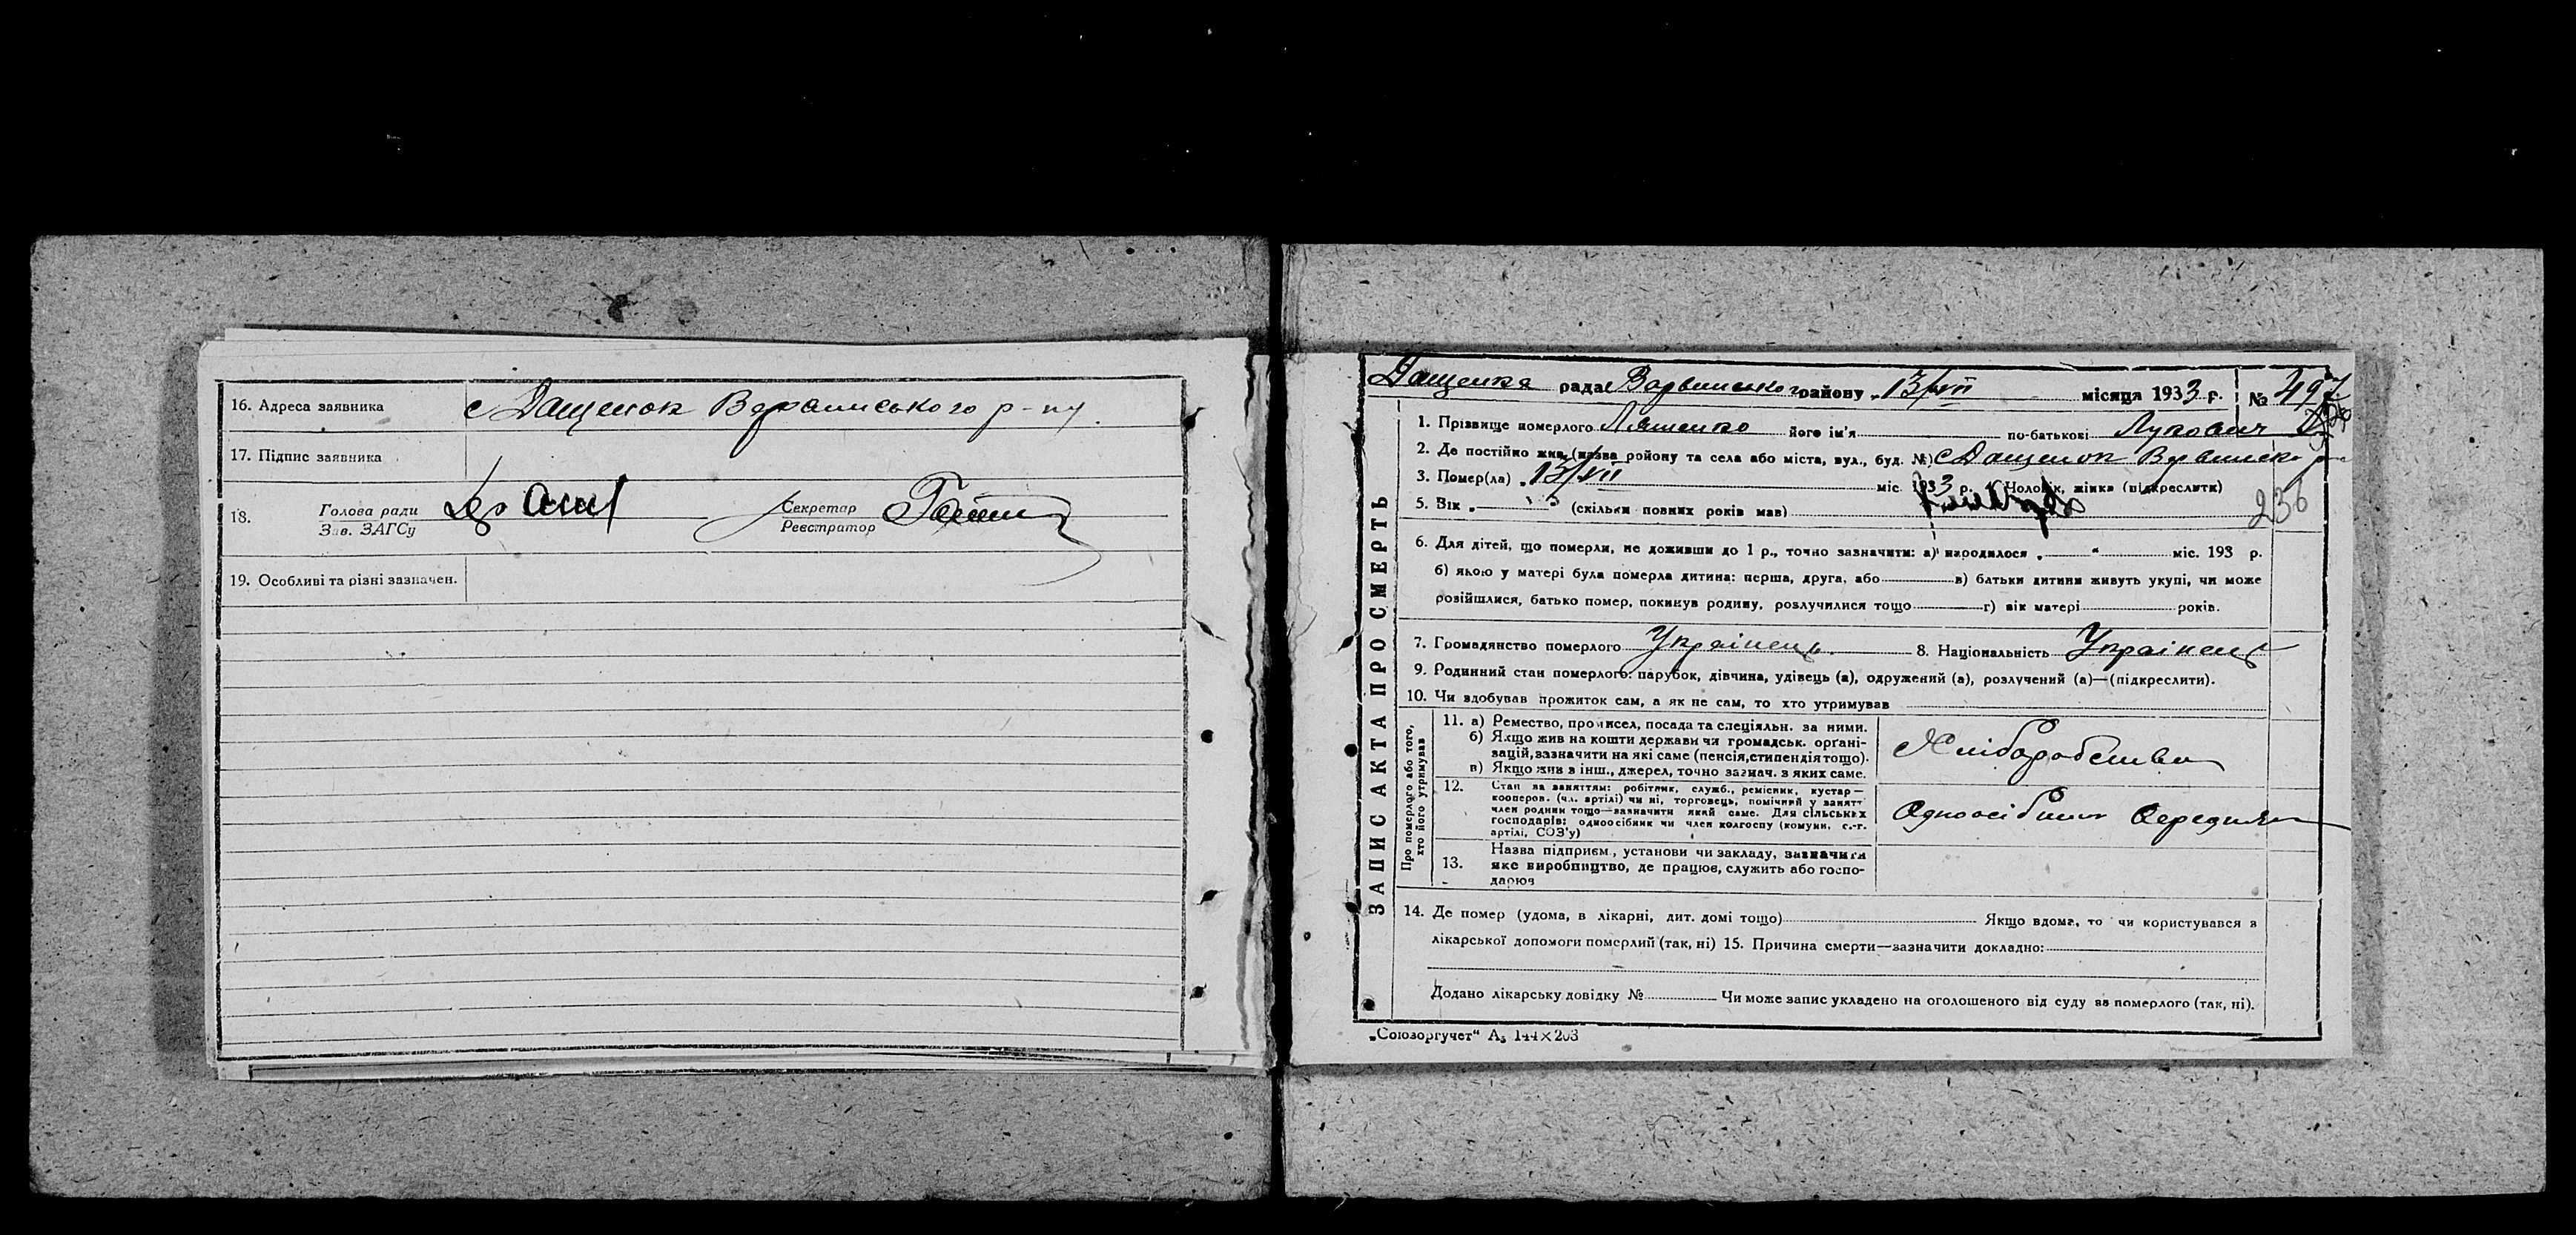 16. Адреса заявника с Дащенок Варвинського р-ну
17. Підпис заявника
18. Голова ради Зав. ЗАГСу Секретар Реєстратор
19. Особливі та різні зазначен.
ЗАПИС АКТА ПРО СМЕРТЬ
Дащенка рада Варвинського району „13/VII місяця 1933 р. № 497
1. Прізвище померлого Ляшенко його ім'я по-батькові Лукович
2. Де постійно жив (назва району та села або міста, вул., буд. №) с Дащенок Варвинск р
3. Помер(ла) „13/VII міс. 1933 р. 4. Чоловік, жінка (підкреслити)
5. Вік „ (скільки повних років мав)
236
6. Для дітей, що померли, не доживши до 1 р., точно зазначити: а) народилося „ “ міс. 193 р.
б) якою у матері була померла дитина: перша, друга, або в) батьки дитини живуть укупі, чи може
розійшлися, батько помер, покинув родину, розлучилися тощо г) вік матері років.
7. Громадянство померлого Українець 8. Національність Українець
9. Родинний стан померлого: парубок, дівчина, удівець (а), одружений (а), розлучений (а)—(підкреслити).
10. Чи здобував прожиток сам, а як не сам, то хто утримував
Про померлого або того, хто його утримував
11. а) Ремество, промисел, посада та спеціяльн. за ними.
б) Якщо жив на кошти держави чи громадськ. органі-
зацій, зазначити на які саме (пенсія, стипендія тощо).
в) Якщо жив в інш., джерел, точно зазнач. з яких саме.
Хліборобства
12. Стан за заняттям: робітник, служб., ремісник, кустар—
кооперов. (чл. артілі) чи ні, торговець, помічний у занятт
член родини тощо—зазначити який саме. Для сільських
господарів: одноосібник чи член колгоспу (комуни, с.-г.
артілі, СОЗ'у)
Одноосібник Середняк
13. Назва підприєм., установи чи закладу, зазначити
яке виробництво, де працює, служить або госпо-
дарює
14. Де помер (удома, в лікарні, дит. домі тощо) Якщо вдома, то чи користувався з
лікарської допомоги померлий (так, ні) 15. Причина смерти—зазначити докладно:
Додано лікарську довідку № Чи може запис укладено на оголошеного від суду за померлого (так, ні).
„Союзоргучет“ А₅ 144×203